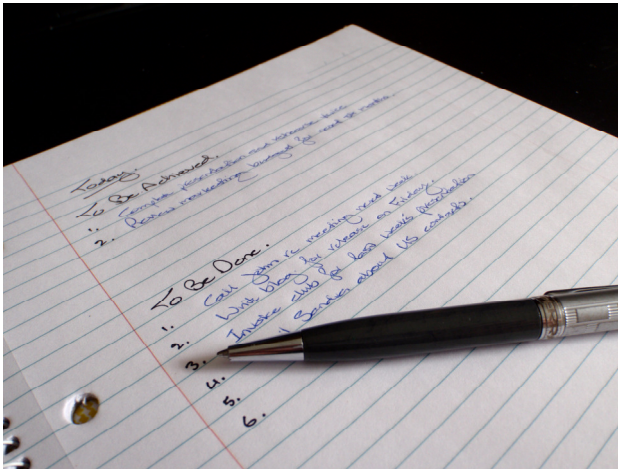 Today.
To Be Achieved.
1. Complete presentation and rehearse
2. Review marketing budget for next months.
To Be Done.
1. Call John re meeting next week.
2. Write blog for release on Friday.
3. Invoice club for last week's presentation
4. Sandra about US contacts.
5.
6.